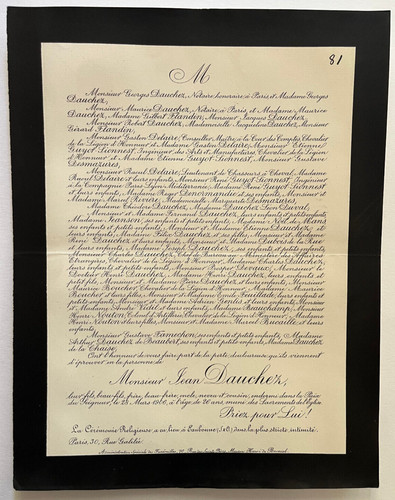 81
M
Monsieur Georges Dauchez, Notaire honoraire à Paris et Madame Georges
Dauchez,
Monsieur Maurice Dauchez, Notaire à Paris, et Madame Maurice
Dauchez, Madame Gilbert Flandin, Monsieur Jacques Dauchez,
Monsieur Robert Dauchez, Mademoiselle Jacqueline Dauchez, Monsieur
Gérard Flandin,
Monsieur Gaston Delaire, Conseiller Maître à la Cour des Comptes, Chevalier
de la Légion d'Honneur et Madame Gaston Delaire, Monsieur Etienne
Guyot Sionnest, Ingénieur des Arts et Manufactures, Chevalier de la Légion
d'Honneur et Madame Etienne Guyot Sionnest, Monsieur Gustave
Desmazures,
Monsieur Raoul Delaire, Lieutenant de Chasseurs à Cheval, Madame
Raoul Delaire et leurs enfants, Monsieur René Guyot Sionnest, Ingénieur
à la Compagnie Paris-Lyon-Méditerranée, Madame René Guyot Sionnest
et leurs enfants, Madame Roger Denormandie et ses enfants, Monsieur et
Madame Marcel Rivière, Mademoiselle Marguerite Desmazures,
Madame Théodore Dauchez, Madame Léon Duval,
Monsieur et Madame Fernand Dauchez, leurs enfants et petits enfants,
Madame Jeanson, ses enfants et petits enfants, Madame Noël de Mans
ses enfants et petits enfants, Monsieur et Madame Etienne Dauchez et
leurs enfants, Madame Dauchez et ses filles, Monsieur et Madame
René Dauchez et leurs enfants, Monsieur et Madame Dubois de la Rue
et leurs enfants, Madame Joseph Dauchez et ses enfants,
Monsieur Charles Dauchez, Chef de Bureau au Ministère des Affaires
Etrangères, Chevalier de la Légion d'Honneur, Madame Charles Dauchez,
leurs enfants et petits enfants, Monsieur Prosper Dervaux, Monsieur le
Docteur Henri Dauchez, Madame Henri Dauchez, leurs enfants et
petit fils, Monsieur et Madame Pierre Dauchez et leurs enfants, Monsieur
Maurice Boucher, Chevalier de la Légion d'Honneur, Madame Maurice
Boucher et leurs filles, Monsieur et Madame Emile Feuillide, leurs enfants et
petits enfants, Monsieur et Madame Adrien leurs enfants, Monsieur
et Madame André Dauchez et leurs enfants, Madame Beauchamp, Monsieur
Henri Nouton, d'Artillerie, Chevalier de la Légion d'Honneur, Madame
Henri Nouton et leurs fils, Monsieur et Madame Marcel Bucaille et leurs
enfants,
Monsieur Gustave Famechon, ses enfants et petits enfants, Madame
Arthur Dauchez de Beaubert, ses enfants et petits enfants, Madame Dauchez
de la Chaise,
Ont l'honneur de vous faire part de la perte douloureuse qu'ils viennent
d'éprouver en la personne de
Monsieur Jean Dauchez,
leur fils, beau-fils, frère, beau-frère, oncle, neveu et cousin, endormi dans la Paix
du Seigneur, le 28 Mars 1906, à l'âge de 20 ans, muni des Sacrements de l'Eglise.
Priez pour Lui!
La Cérémonie Religieuse a eu lieu à Eaubonne, (S.O.) dans la plus stricte intimité.
Paris, 30, Rue Galilée.